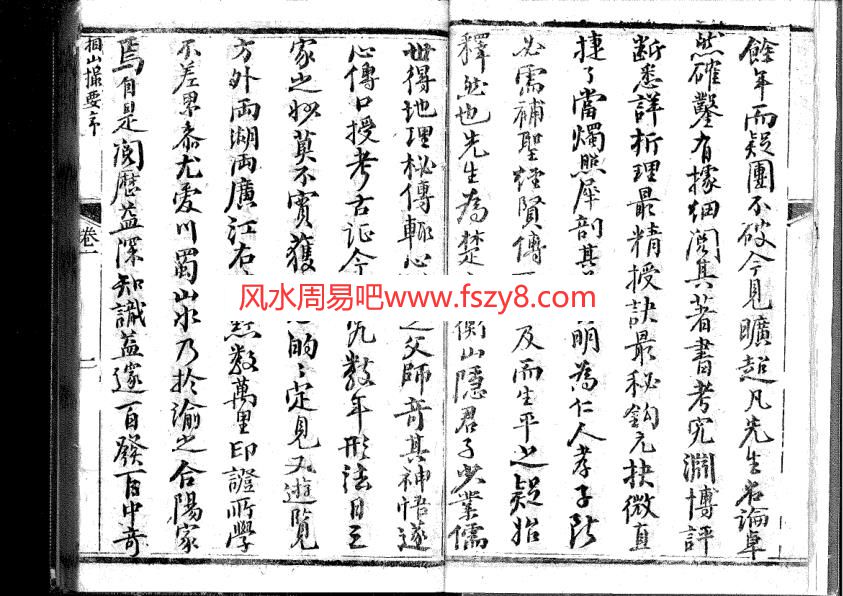 餘年而疑團不破今見曠超凡先生名論卓
然確鑿有據細閱其著書考究淵博評
斷悉詳析理最精授訣最秘鈎元抉微直
捷了當燭照犀剖其 明為仁人孝子所
必需補聖經賢傳 及而生平之疑始
釋然也先生為楚 衡山隱君子少業儒
世得地理秘傳輒心 之父師奇其神悟遂
心傳口授考古証今 究數年形法日三
家之妙莫不實獲 的〻定見又遊覽
方外兩湖兩廣江右 點數萬里印證所學
不差累黍尤愛川蜀山水乃於渝之合陽家
焉自是閱歷益深知識益邃百發百中奇
相山撮要序
卷一
二
风水周易吧www.fszy8.com